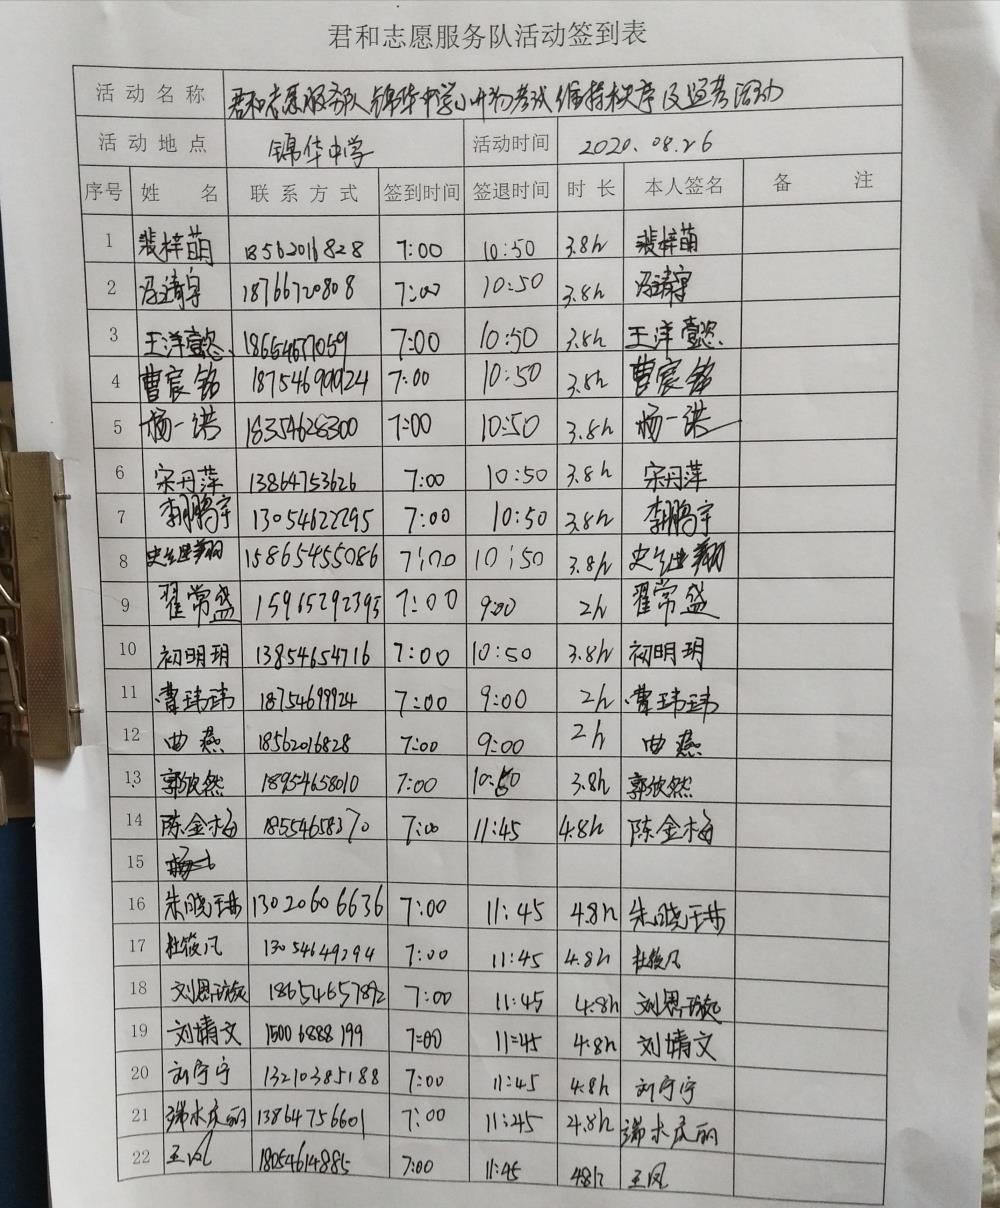 君和志愿服务队活动签到表
活动名称 君和志愿服务队锦华中学小升初考试维持秩序及巡考活动
活动地点 锦华中学 活动时间 2020.08.26
序号 姓名 联系方式 签到时间 签退时间 时长 本人签名 备注
1 裴梓萌 18562016828 7:00 10:50 3.8h 裴梓萌
2 冯靖宇 18766720808 7:00 10:50 3.8h 冯靖宇
3 王洋懿 18654677059 7:00 10:50 3.8h 王洋懿
4 曹宸铭 18754699924 7:00 10:50 3.8h 曹宸铭
5 杨一诺 18354628300 7:00 10:50 3.8h 杨一诺
6 宋丹萍 13864753626 7:00 10:50 3.8h 宋丹萍
7 李鹏宇 13054622795 7:00 10:50 3.8h 李鹏宇
8 史继翔 15865455086 7:00 10:50 3.8h 史继翔
9 翟常盛 15965292395 7:00 9:00 2h 翟常盛
10 初明玥 13854654716 7:00 10:50 3.8h 初明玥
11 曹玮玮 18754699924 7:00 9:00 2h 曹玮玮
12 曲燕 18562016828 7:00 9:00 2h 曲燕
13 郭欣然 18954658010 7:00 10:50 3.8h 郭欣然
14 陈金梅 18554658370 7:00 11:45 4.8h 陈金梅
15
16 朱晓珊 13020606636 7:00 11:45 4.8h 朱晓珊
17 杜筱凡 13054649294 7:00 11:45 4.8h 杜筱凡
18 刘恩璇 18654657892 7:00 11:45 4.8h 刘恩璇
19 刘婧文 15006888199 7:00 11:45 4.8h 刘婧文
20 刘宁宁 13210385188 7:00 11:45 4.8h 刘宁宁
21 端木庆丽 13864756601 7:00 11:45 4.8h 端木庆丽
22 王凤 18054614885 7:00 11:45 4.8h 王凤